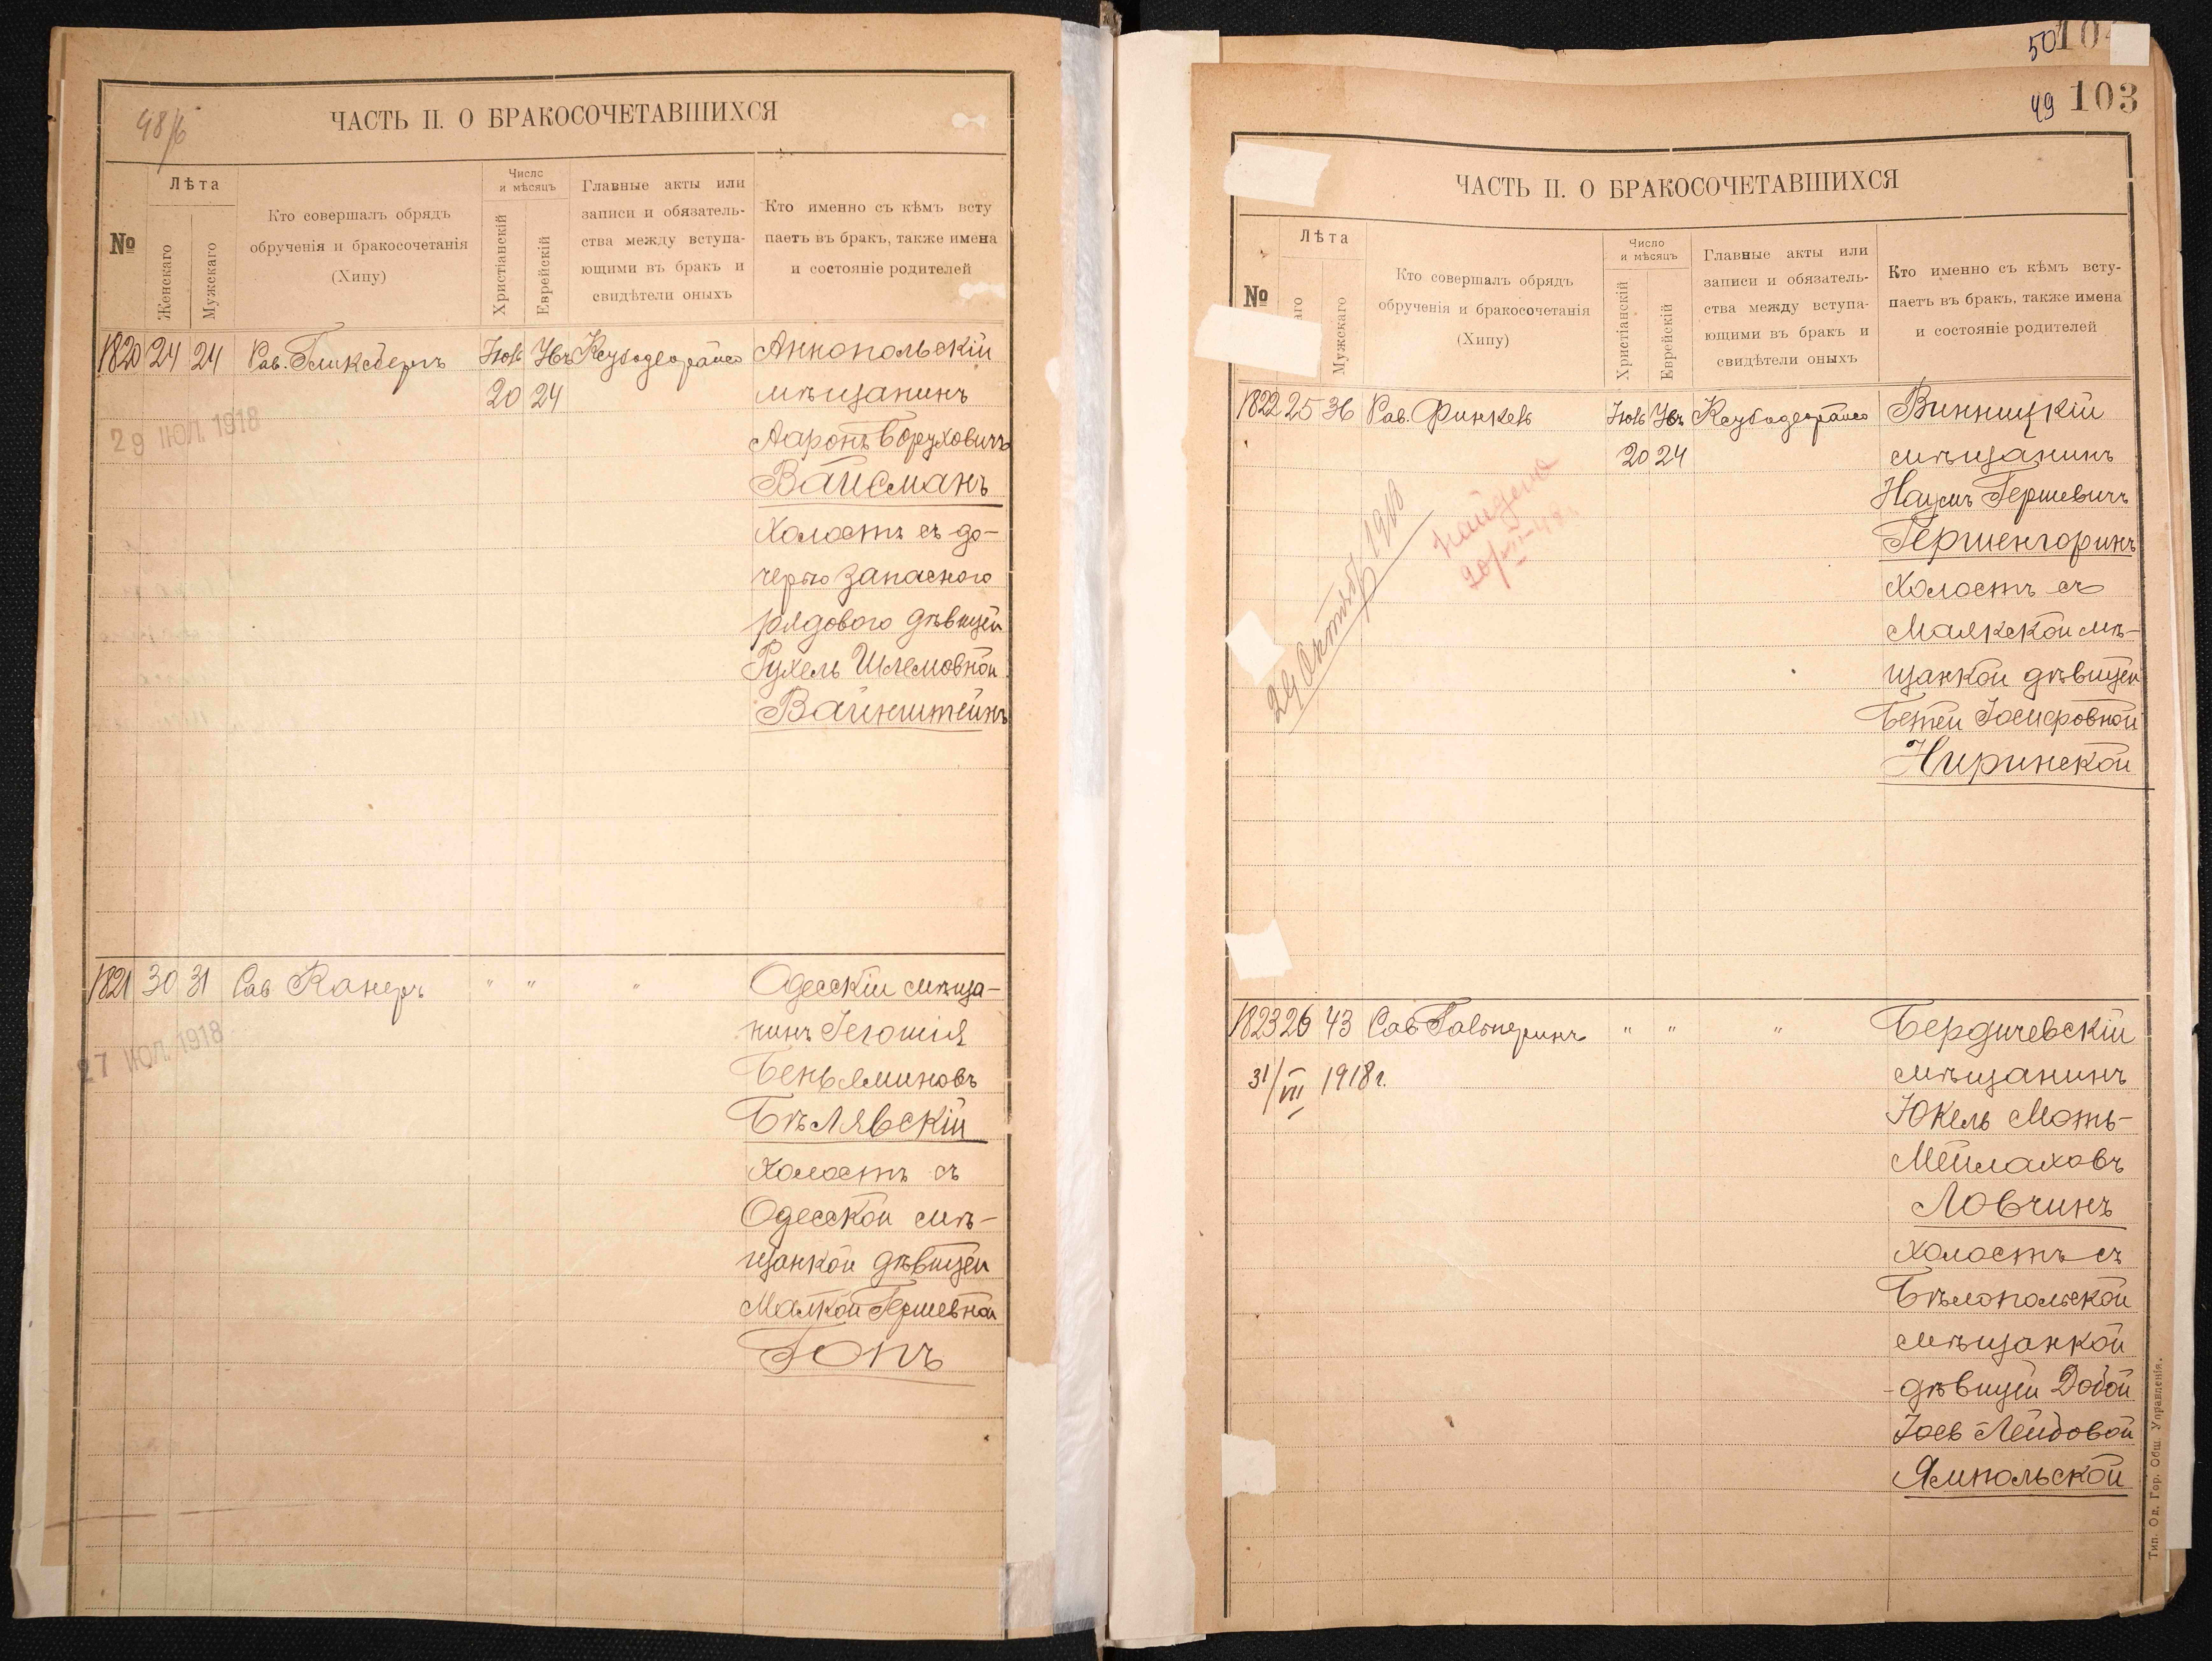 48/б
ЧАСТЬ II. О БРАКОСОЧЕТАВШИХСЯ
№
Лѣта
Женскаго
Мужскаго
Кто совершалъ обрядъ
обрученія и бракосочетанія
(Хипу)
Число
и мѣсяцъ
Христіанскій
Еврейскій
Главные акты или
записи и обязатель-
ства между вступа-
ющими въ бракъ и
свидѣтели оныхъ
Кто именно съ кѣмъ всту
паетъ въ бракъ, также имена
и состояніе родителей
1820 24 24 Рав. Гликсбергъ
20 24
Аннопольскій
мѣщанинъ
Ааронъ Боруховичъ
Вайсманъ
холостъ съ до-
черью запасного
рядового дѣвицей
Рухель Шлемовной
Вайнштейнъ
29 ІЮЛ. 1918
1821 30 31 Рав Канеръ " " "
Одесскій мѣща-
нинъ Іегошія
Беньяминовъ
Бѣлявскій
холостъ съ
Одесской мѣ-
щанкой дѣвицей
Малкой Гершевной
Гопъ
27 ІЮЛ. 1918
50 10
49 103
ЧАСТЬ II. О БРАКОСОЧЕТАВШИХСЯ
№
Лѣта
аго
Мужскаго
Кто совершалъ обрядъ
обрученія и бракосочетанія
(Хипу)
Число
и мѣсяцъ
Христіанскій
Еврейскій
Главные акты или
записи и обязатель-
ства между вступа-
ющими въ бракъ и
свидѣтели оныхъ
Кто именно съ кѣмъ всту-
паетъ въ бракъ, также имена
и состояніе родителей
1822 25 36 Рав. Финкель
20 24
Винницкій
мѣщанинъ
Наумъ Гершевичъ
Гершенгоринъ
холостъ съ
Маякской мѣ-
щанкой дѣвицей
Бетей Іосифовной
Ниринской
29 Октября 1918
найдена
1823 26 43 Рав Гальперинъ " " "
31/VII 1918 г.
Бердичевскій
мѣщанинъ
Юкель Моть-
Мейлаховъ
Ловчинъ
холостъ съ
Бѣлопольской
мѣщанкой
дѣвицей Добой
Іось Лейбовой
Ямпольской
Тип. Од. Гор. Общ. Управленія.